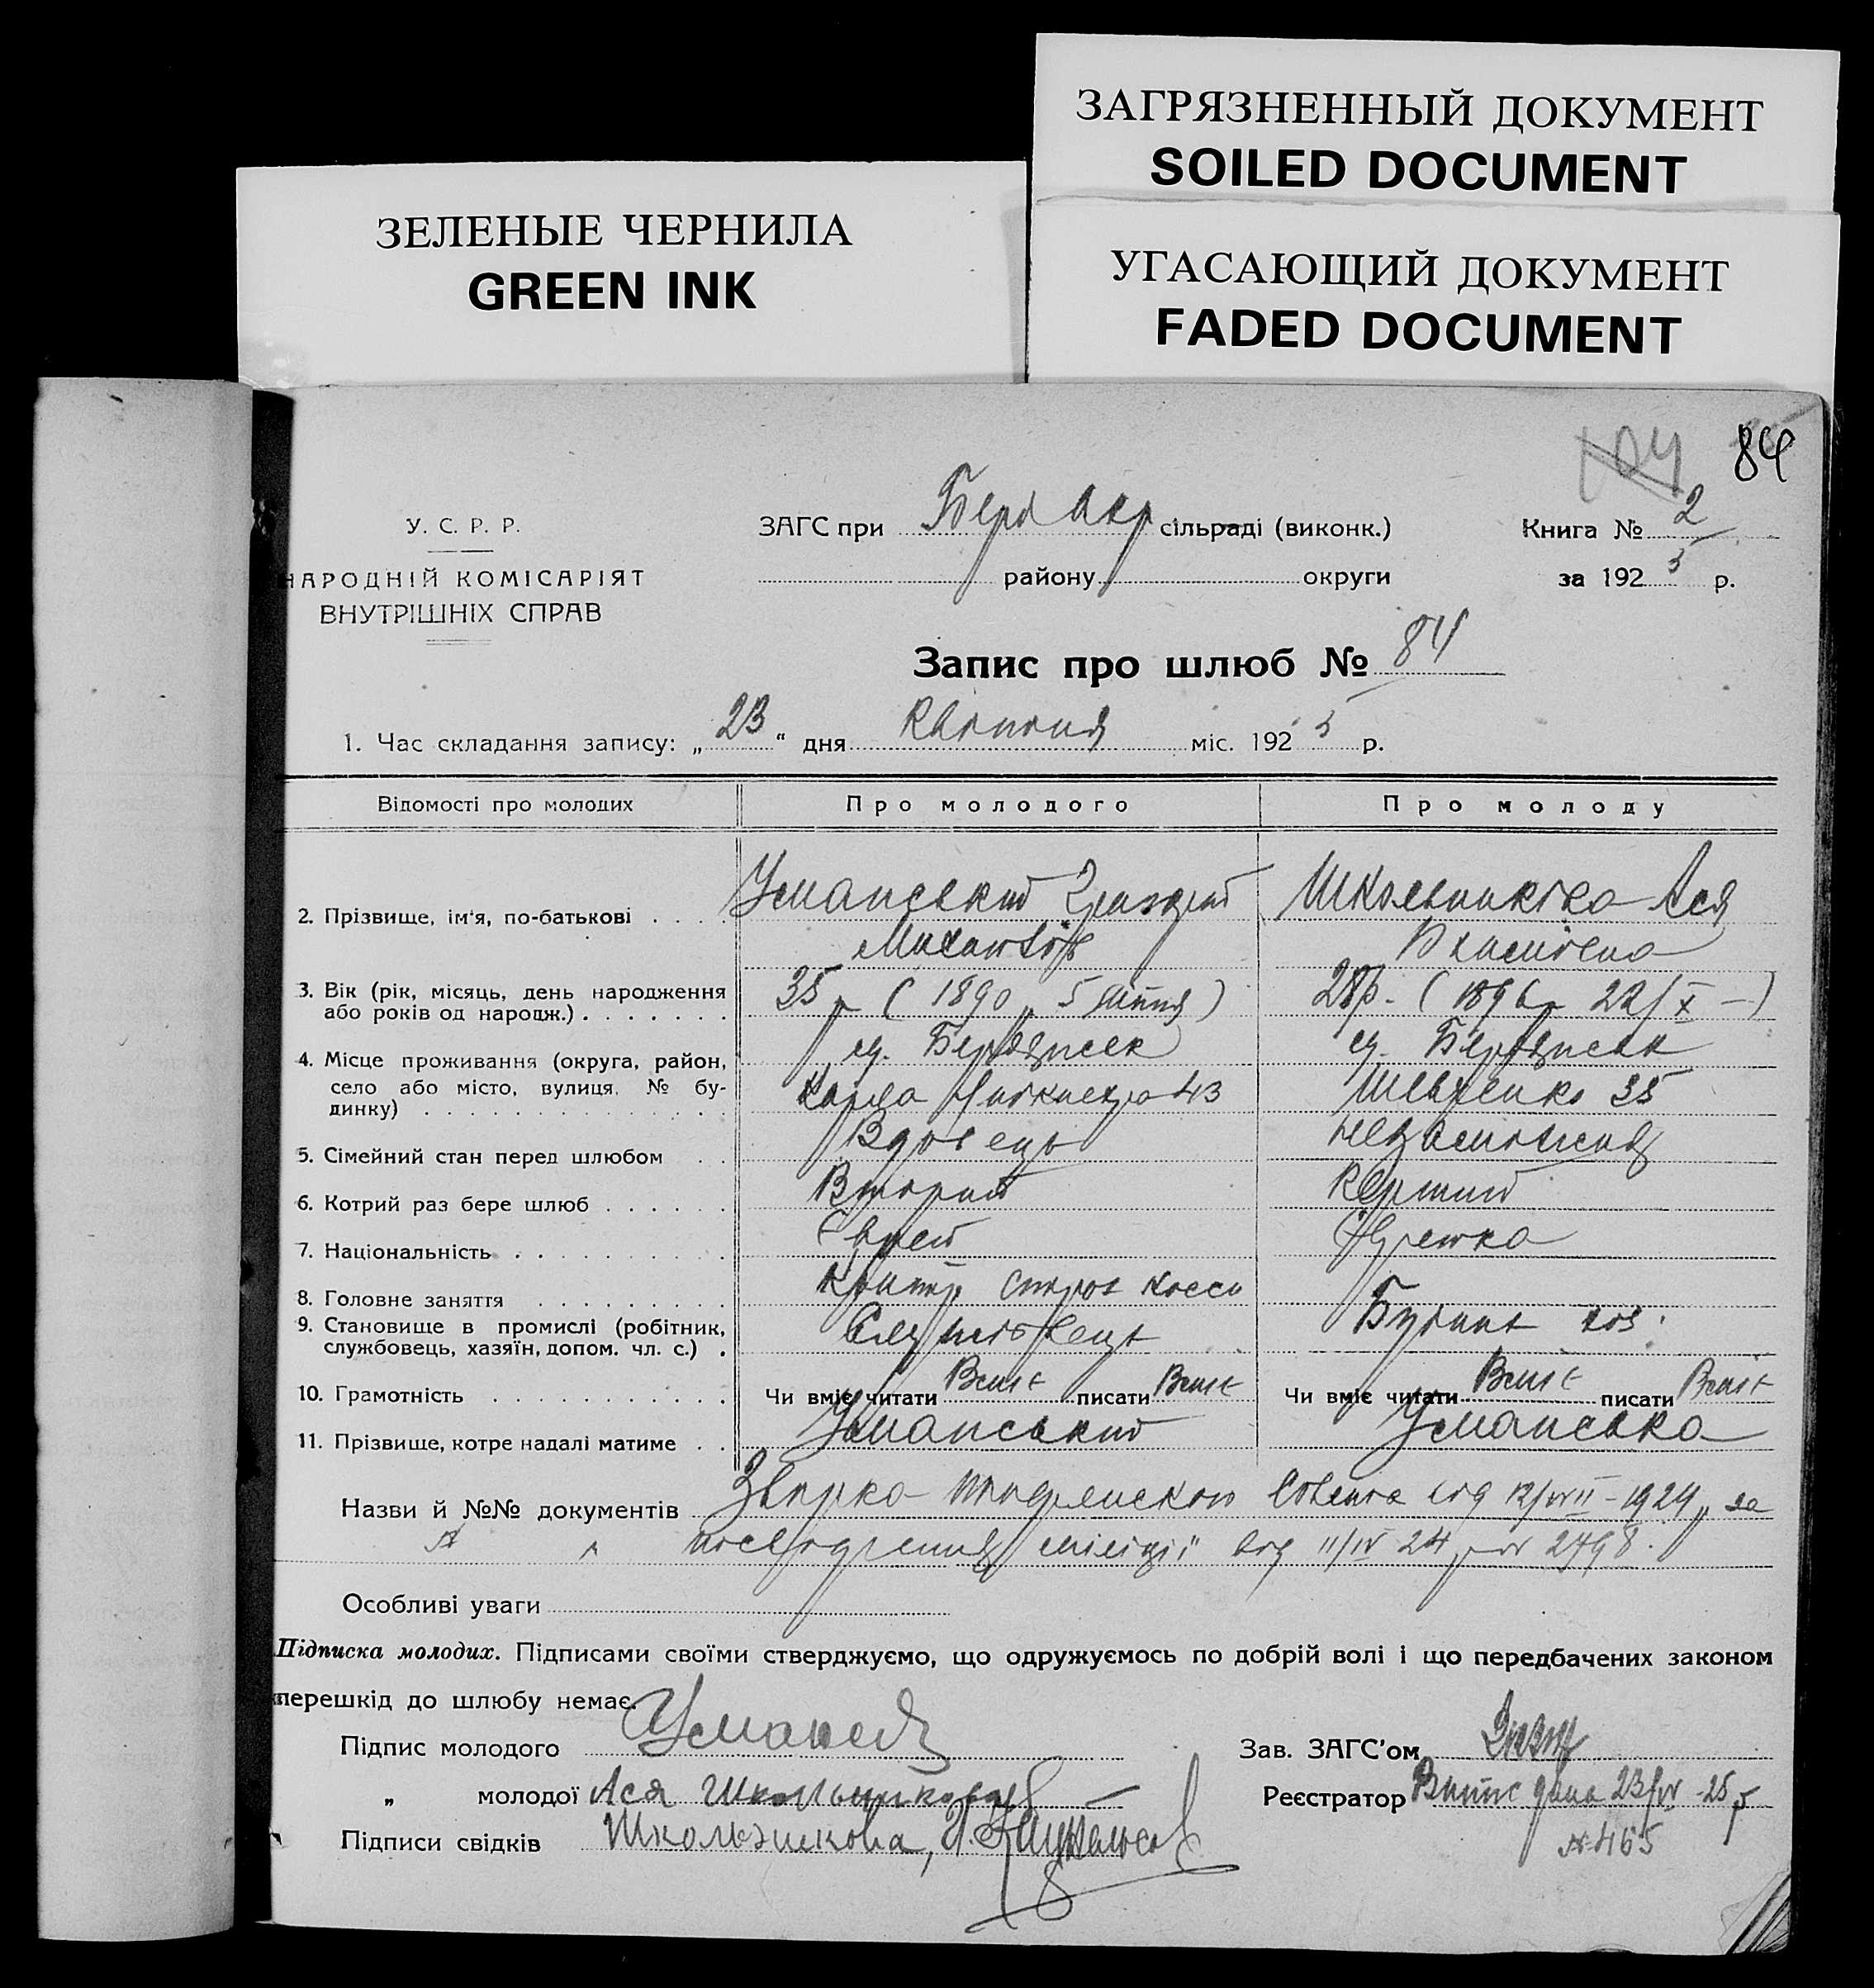 ЗАГРЯЗНЕННЫЙ ДОКУМЕНТ
SOILED DOCUMENT
ЗЕЛЕНЫЕ ЧЕРНИЛА
GREEN INK
УГАСАЮЩИЙ ДОКУМЕНТ
FADED DOCUMENT
104 84
У. С. Р. Р.
НАРОДНІЙ КОМІСАРІЯТ
ВНУТРІШНІХ СПРАВ
ЗАГС при Берд Окр сільраді (виконк.)
району округи
Книга № 2
за 1925 р.
Запис про шлюб № 84
1. Час складання запису: „23“ дня Квітня міс. 1925 р.
Відомості про молодих Про молодого Про молоду
2. Прізвище, ім'я, по-батькові . . . Уманський Школьнікова Ася
3. Вік (рік, місяць, день народження
або років од народж.) . . . . . . . 35 р. (1890 р. 5 липня) 28 р. (1896 р. 22/X –)
4. Місце проживання (округа, район,
село або місто, вулиця, № бу-
динку) . . . . . . . . . . . . . .
м. Бердичев
Карла Лібкнехта 43
м. Бердичев
Шевченко 35
5. Сімейний стан перед шлюбом . . Вдовець незаможня
6. Котрий раз бере шлюб . . . . . . Вторий Перший
7. Національність . . . . . . . . . . Єврей Єврейка
8. Головне заняття . . . . . . . . . страх кассы
9. Становище в промислі (робітник,
службовець, хазяїн, допом. чл. с.) . Службовець
10. Грамотність . . . . . . . . . . . Чи вміє читати Вміє писати Вміє Чи вміє читати Вміє писати Вміє
11. Прізвище, котре надалі матиме . . Уманський Уманська
Назви й №№ документів од 12/VII – 1924 р. за
№ посвідчення міліції од 11/IV 24 р. 2498.
Особливі уваги
Підписка молодих. Підписами своїми стверджуємо, що одружуємось по добрій волі і що передбачених законом
перешкід до шлюбу немає.
Підпис молодого
Зав. ЗАГС'ом
„ молодої Ася Школьникова
Реєстратор дана 23/IV -25 р
Підписи свідків Школьникова,
№ 465